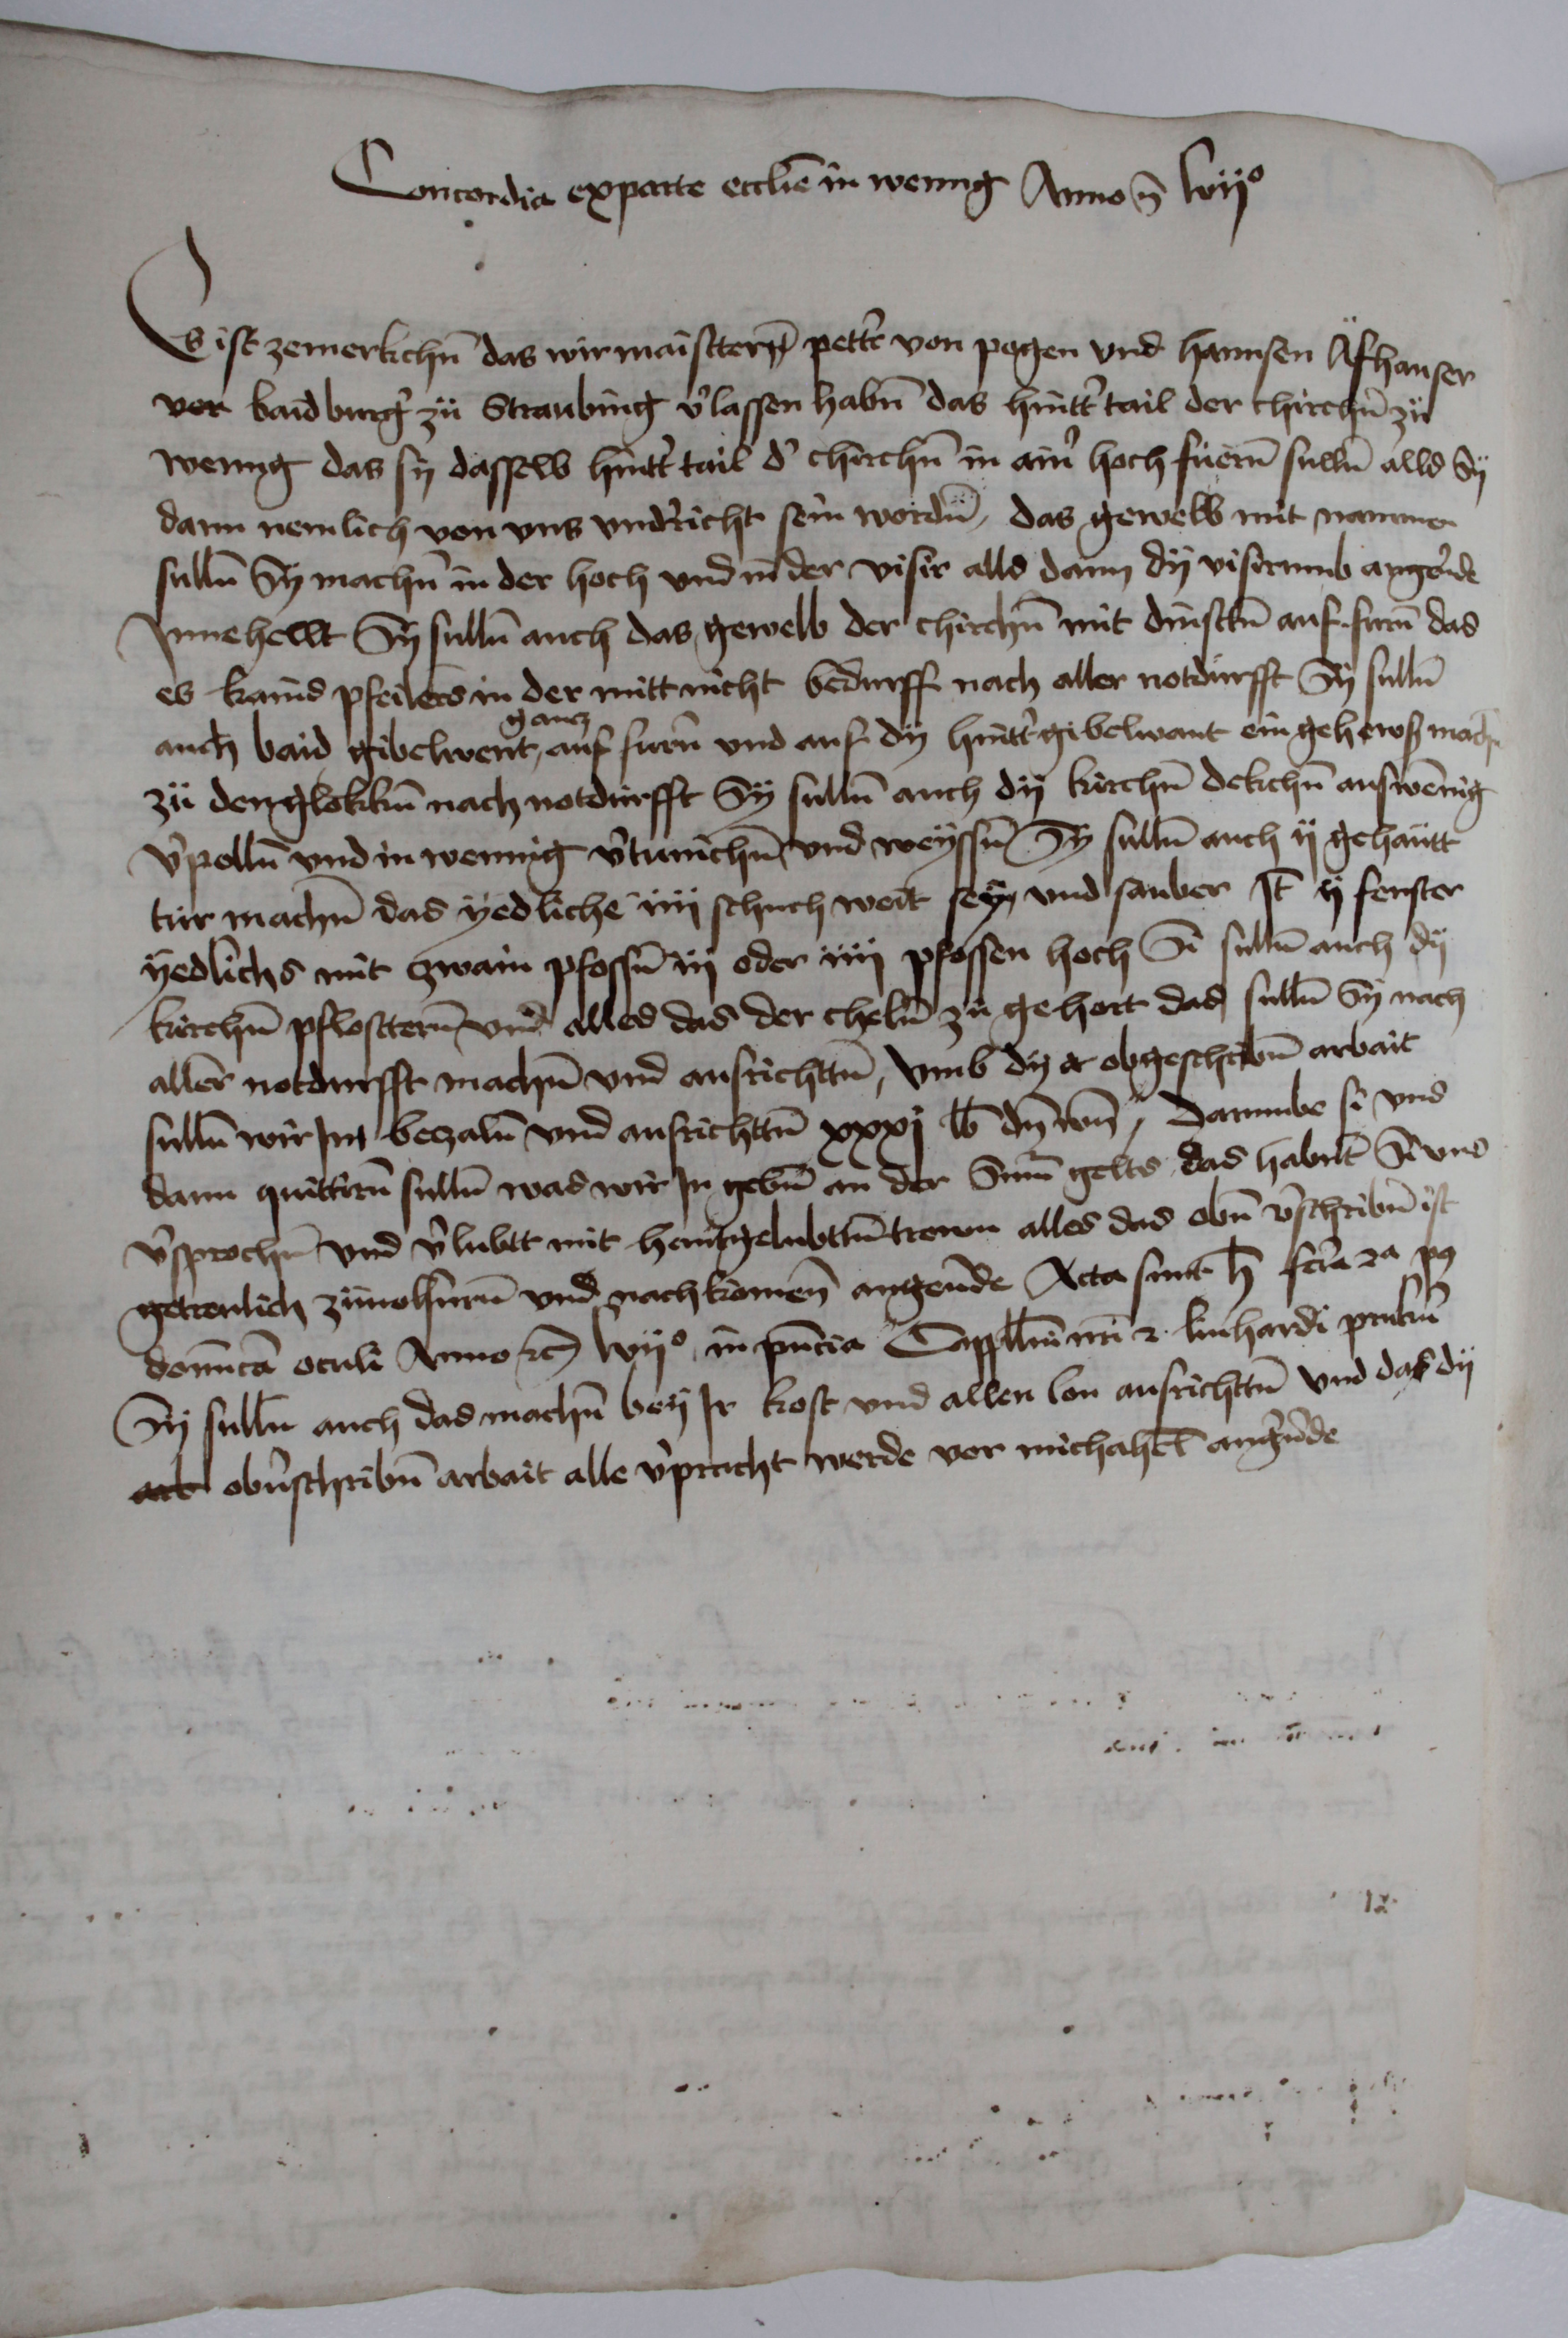 Concordia exparte ecclie in wenng Anno ꝛc̄ lvijº
Es ist zemerkchn̄ das wir maistern̄ pett̉ von pogen vnd hannsen Äfhauser
vor baid burg̉ zü Straubing v̉lassen habn̄ das hintt̉tail der chirchn̄ zü
wenng das sy dasselb hintt̉tail d̉ chirchn̄ in ain̉ hoch füern̄ sulln̄ alls Sÿ
dann nemlich von vns vnd̉richt sein wordn̄, das gewelb mit nammen
sulln̄ Sÿ machn̄ in der hoch vnd in der visir alls dann dÿ visirumb angeūde
Innehellt Sÿ sulln̄ auch das gewelb der chirchn̄ mit dinsttn̄ auf furn̄ das
es kains pfeilers in der mitt nicht bedurff nach aller notdurfft Sÿ sulln̄
gancz
auch baid gibelwent, auf furn̄ und auf dÿ hintt̉gibelwant ein gehews machn̄
zü den glokkn̄ nach notdurfft Sÿ sulln̄ auch dÿ kirchn̄ dekchn̄ auswennig
v̉polln̄ und in wennig v̉tunichn̄ und weÿssn̄ Sÿ sulln̄ auch ij gehautt
tür machn̄ das ÿedliche iiij schuch weit seÿ und sauber It̄ ij fenster
ÿedlichs mit zwain pfossn̄ iij oder iiij pfossen hoch Si sulln̄ auch dÿ
kirchn̄ pflostern̄ und alles das der cheln̄ zü gehort das sulln̄ Sÿ nach
aller notdurfft machn̄ vnd ausrichttn̄, Vmb dÿ obgeschribn̄ arbait
sulln̄ wir Im beczaln̄ vnd ausrichttn̄ xxxj lb dn̄ wn̄, Darumbe si vns
dann quittirn̄ sulln̄ was wir In gebn̄ an der Sum̄ gelts das habnt Si vns
v̉sprochn̄ vnd v̉lubtt mit hantgelubttn̄ trewn alles das obn̄ v̉schribn̄ ist
getrewlich zünolfurn̄ vnd nachkömen̄ angeūde Acta sunt h̄ feria 2ª pꝰ
domīcā oculi Anno ꝛc̄ lvijº in pn̄cia Cappllni nr̄i ꝛ linhardi prukn̉
Sÿ sulln̄ auch das machn̄ beÿ Ir kost vnd allen lon ausrichttn̄ vnd das dÿ
obn̉schribn̄ arbait alle v̉pracht werde vor michahelꝭ angeūde